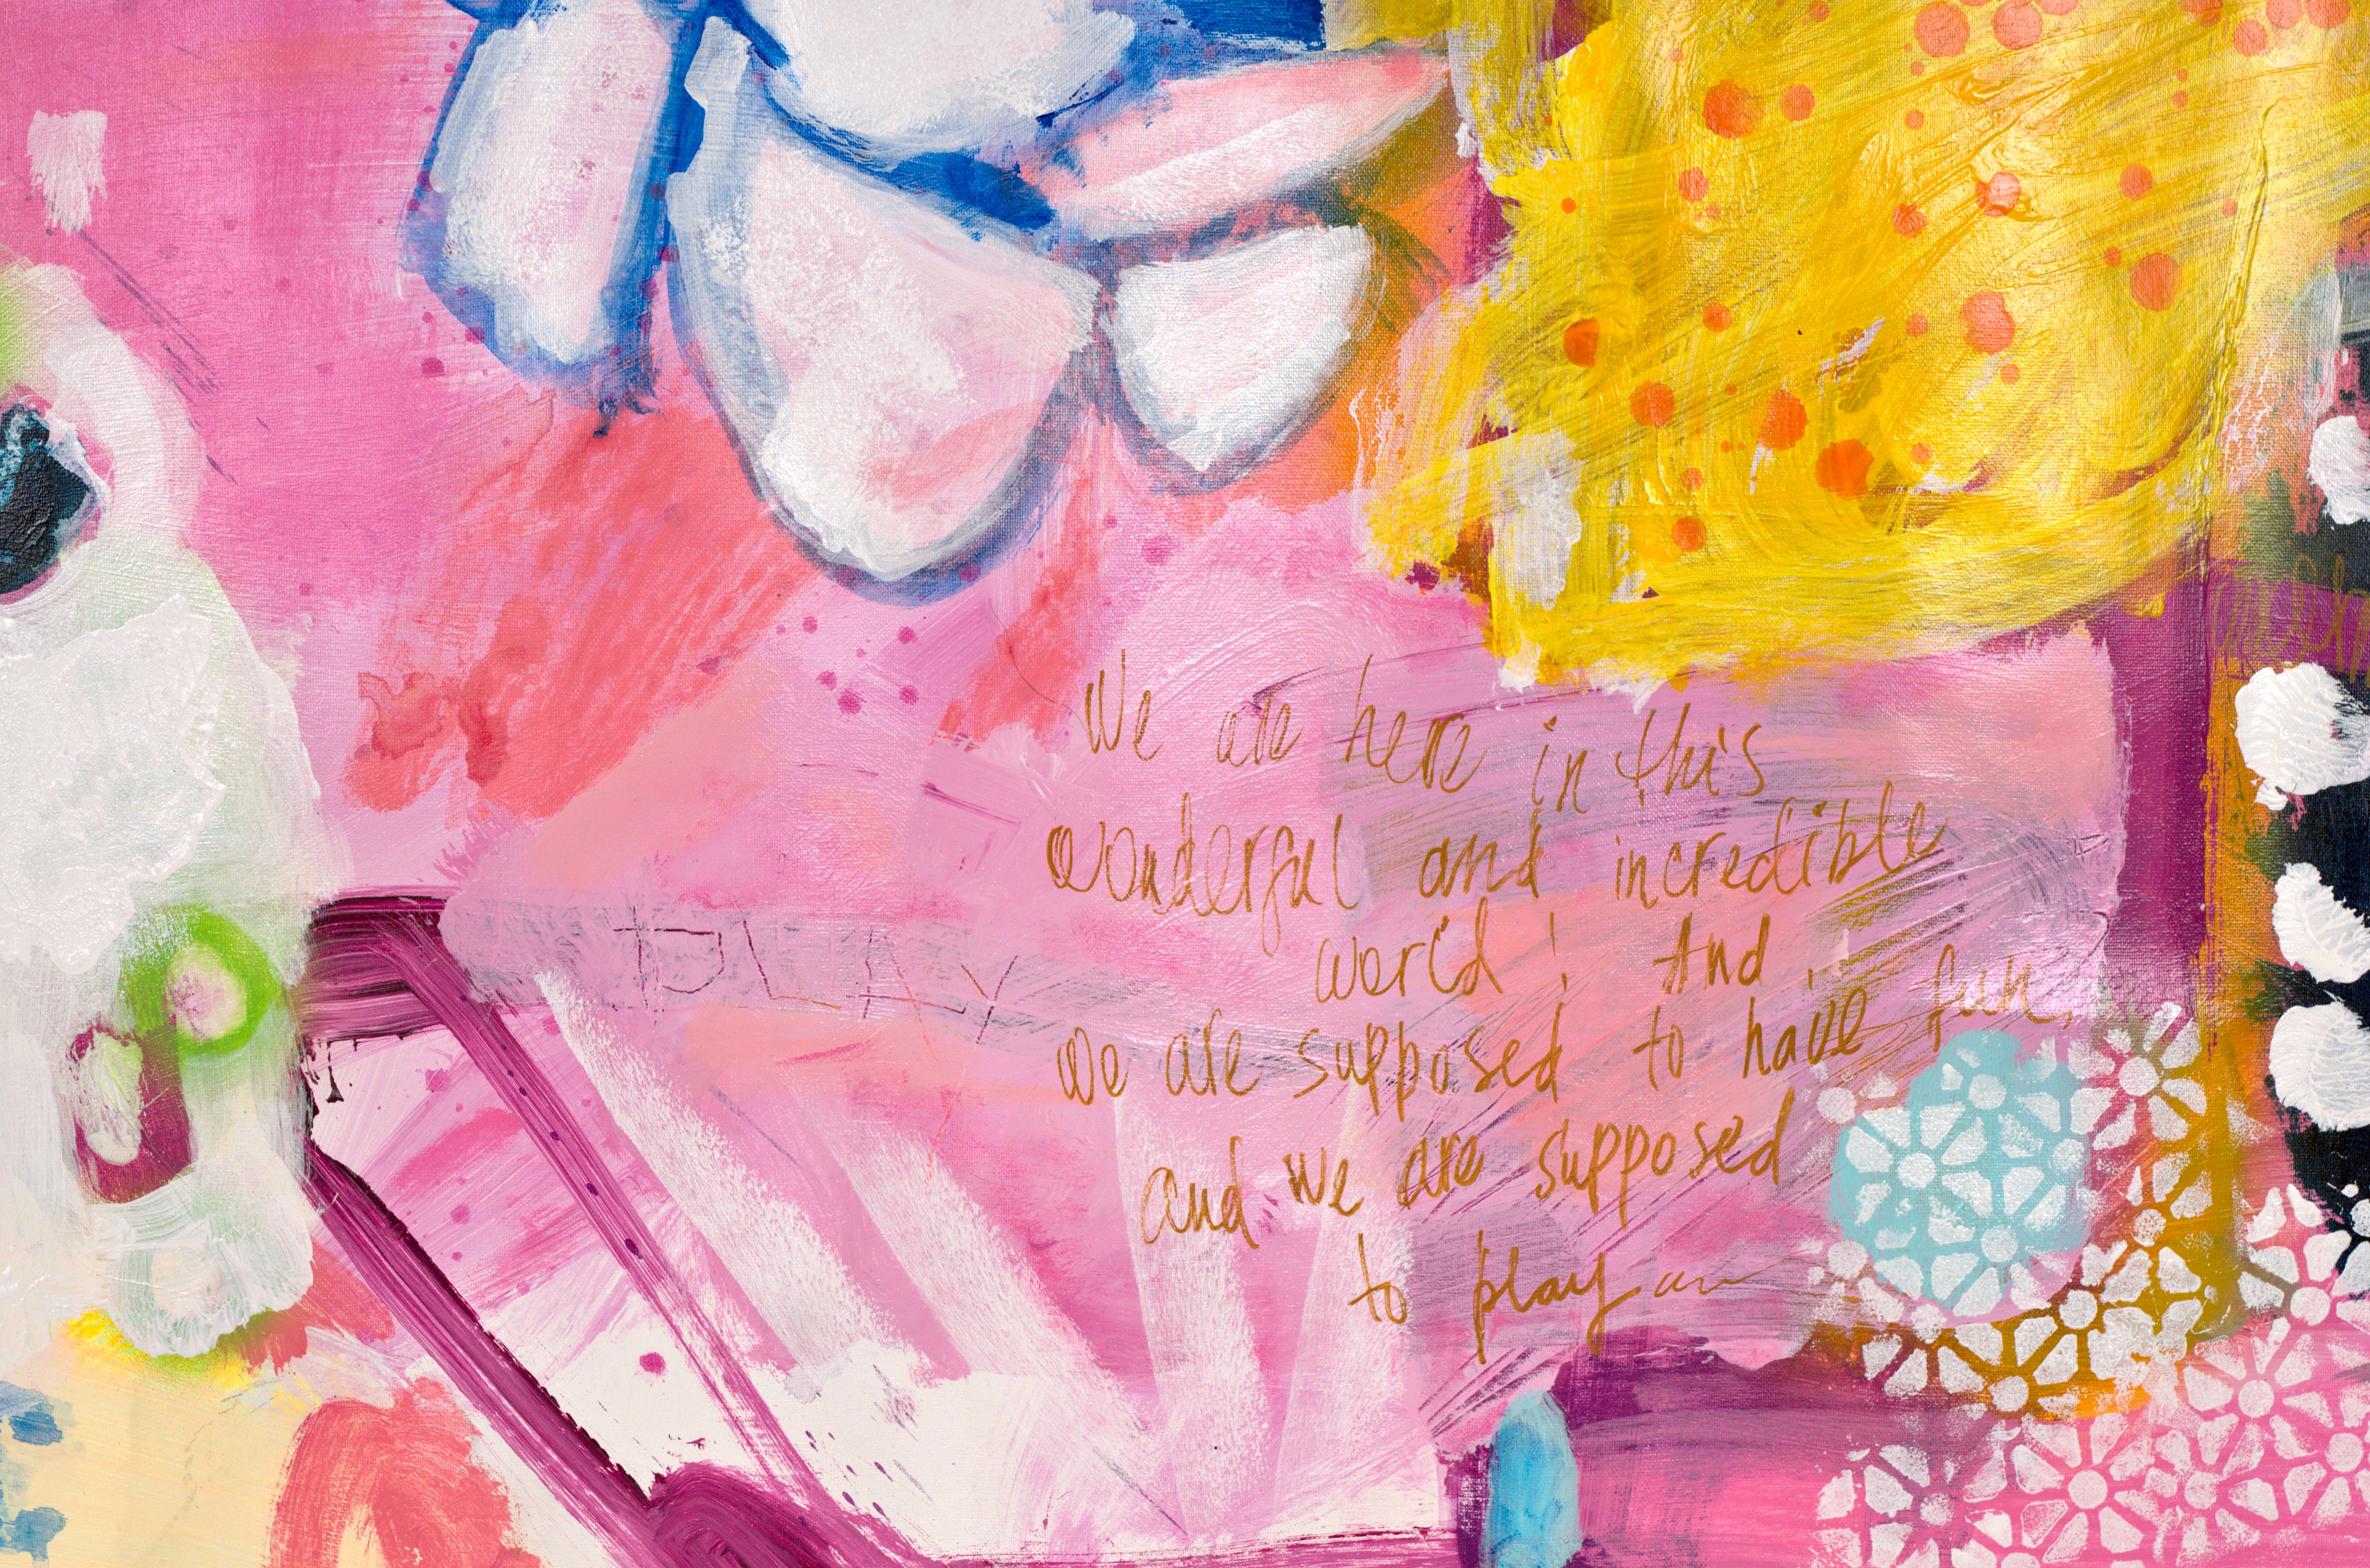 We are here in this
wonderful and incredible
world! And
we are supposed to have fun,
and we are supposed
to play
PLAY